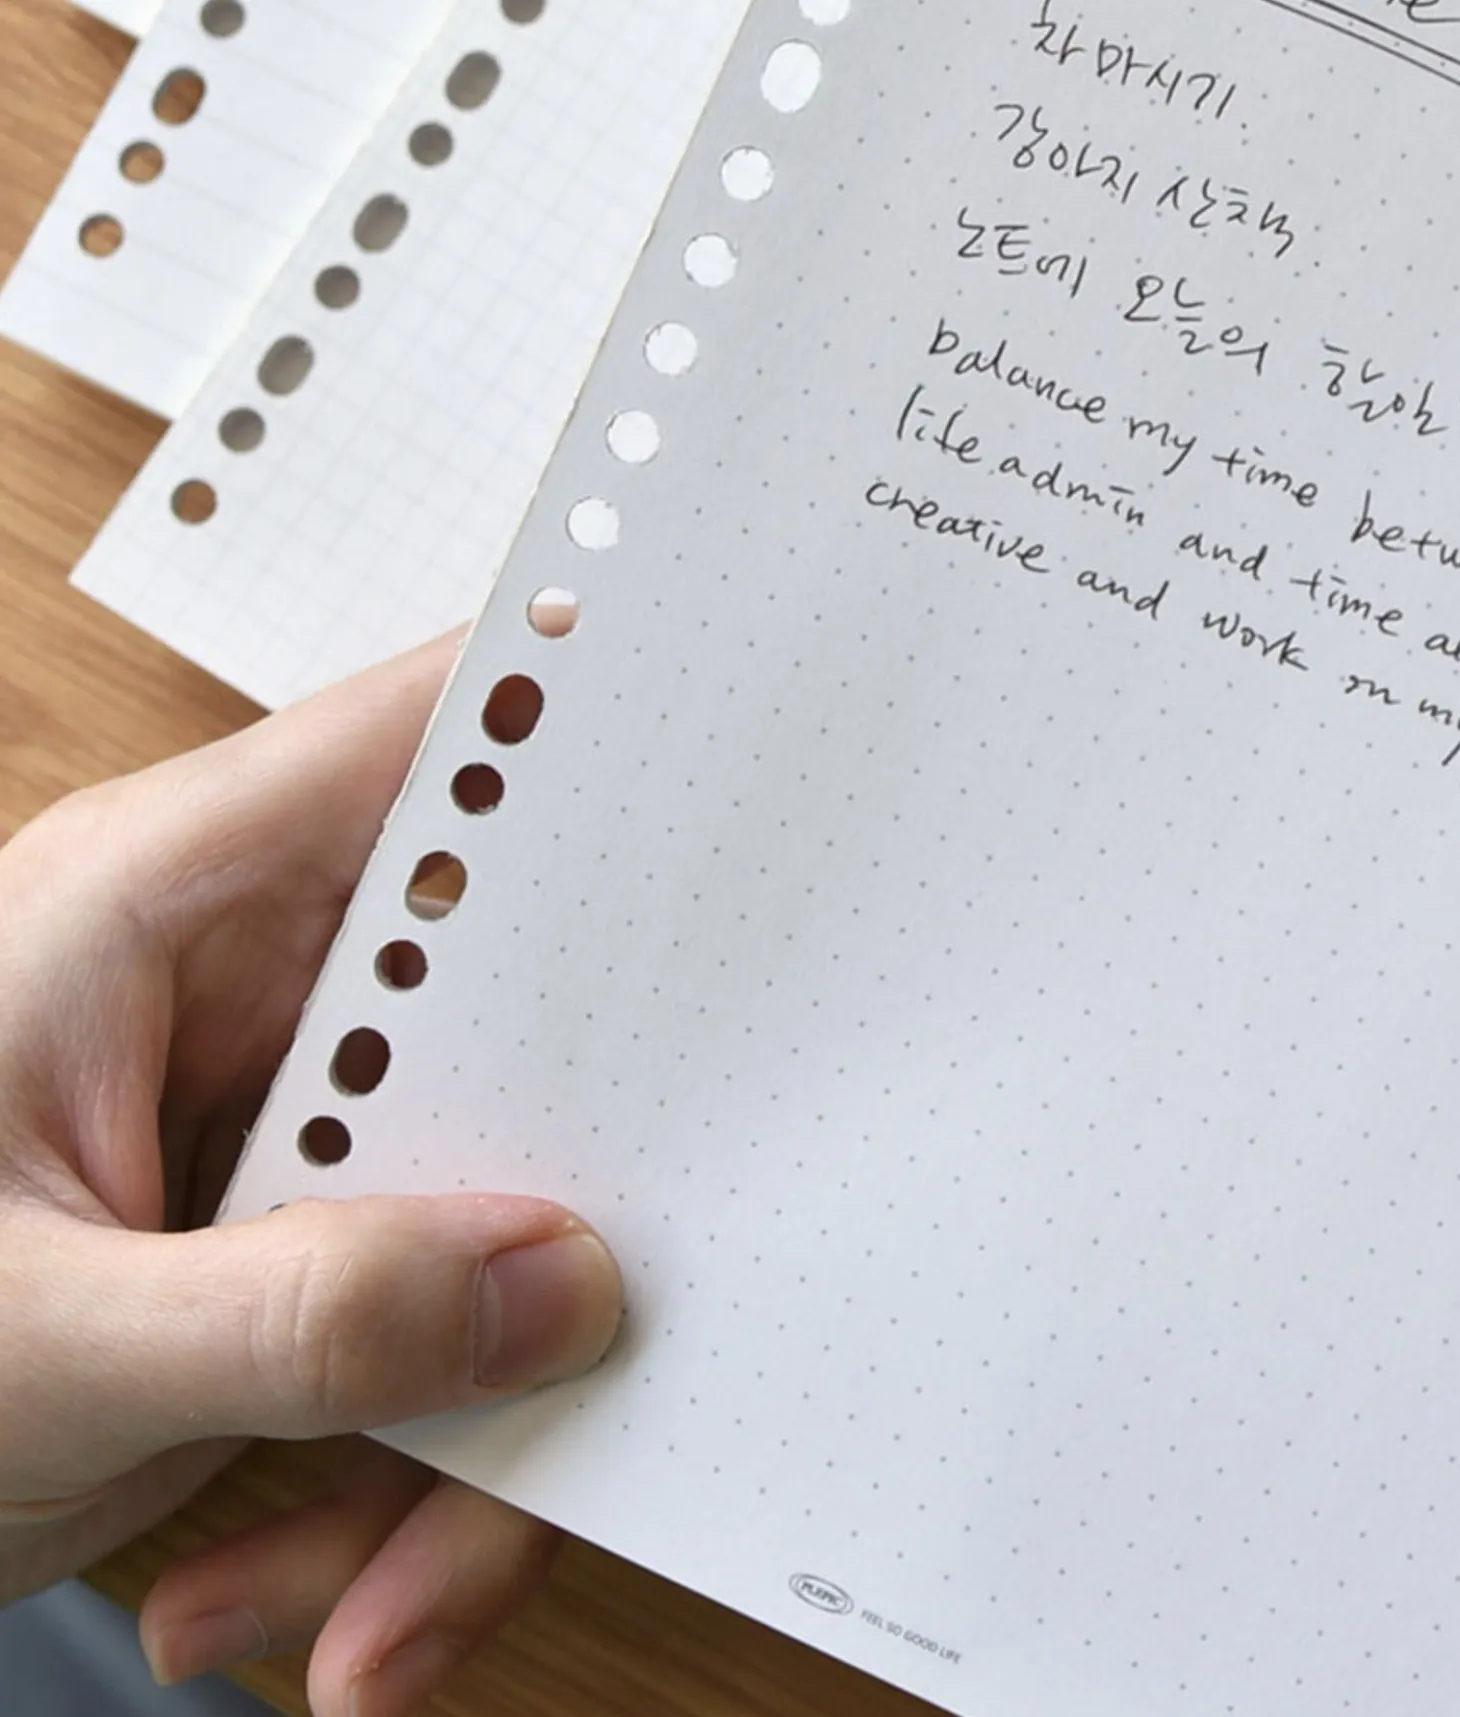 차 마시기
강아지 산책
노트에 오늘의 할일
balance my time
life admin and time
creative and work on my
PLEPIC
FEEL SO GOOD LIFE